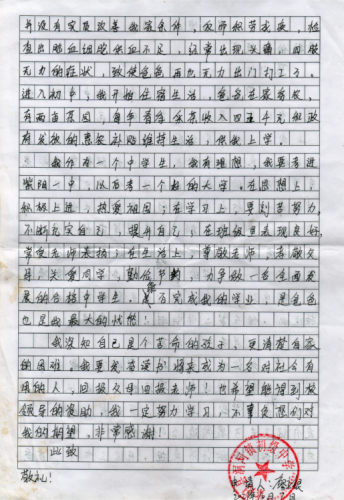 并没有实质改善我家条件，反而积劳成疾，检
查出脑血细胞供血不足，经常出现头痛，四肢
无力的症状，致使爸爸再也无力出门打工了。
进入初中，我开始住宿生活，爸爸在家务农，
有两亩茶园，每年靠卖茶收入四五千元和政
府发放的惠农补贴维持生活，供我上学。
我作为一个中学生，我有理想，我要考进
紫阳一中，以后考一个好的大学，在思想上，
积极上进，热爱祖国；在学习上，要刻苦努力，
不断充实自己，提升自己；在班级里表现良好，
常受老师表扬；在生活上，尊敬老师，孝敬父
母，关爱同学，勤俭节约，力争做一名全面发
展的合格中学生。成功完成我的学业，是爸爸
也是我最大的快慰！
我深知自己是个苦命的孩子，更清楚自家
的困难，我要更奋读书将来成为一名对社会有
用的人，回报父母回报老师！也希望能得到校
领导的援助，我一定努力学习，不辜负您们对
我的期望，非常感谢！
此致
敬礼！
初级中学